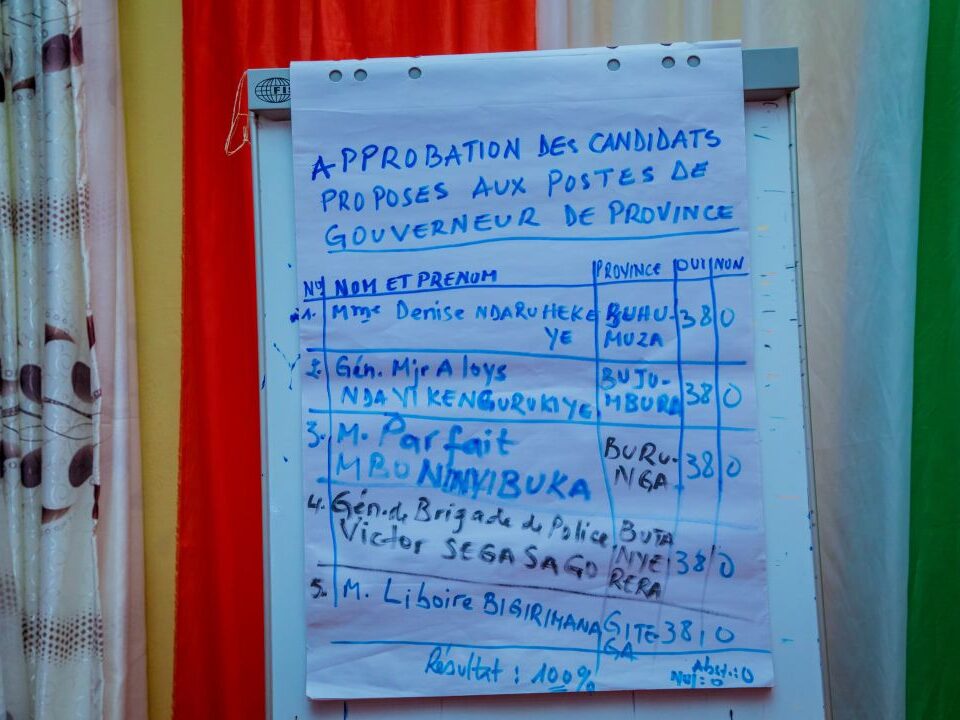 FIS
APPROBATION DES CANDIDATS
PROPOSES AUX POSTES DE
GOUVERNEUR DE PROVINCE
No NOM ET PRENOM PROVINCE OUI NON
1. Mme Denise NDARUHEKE BUHU- 38 0
YE MUZA
2. Gén. Mjr Aloys BUJU-
NDAYIKENGURUKIYE MBURA 38 0
3. M. Parfait BURU-
MBONINYIBUKA NGA 38 0
4. Gén. de Brigade de Police BUTA
Victor SEGASAGO NYE 38 0
RERA
5. M. Liboire BIGIRIMANA GITE- 38 0
GA
Résultat : 100% Abst.: 0
Nul : 0